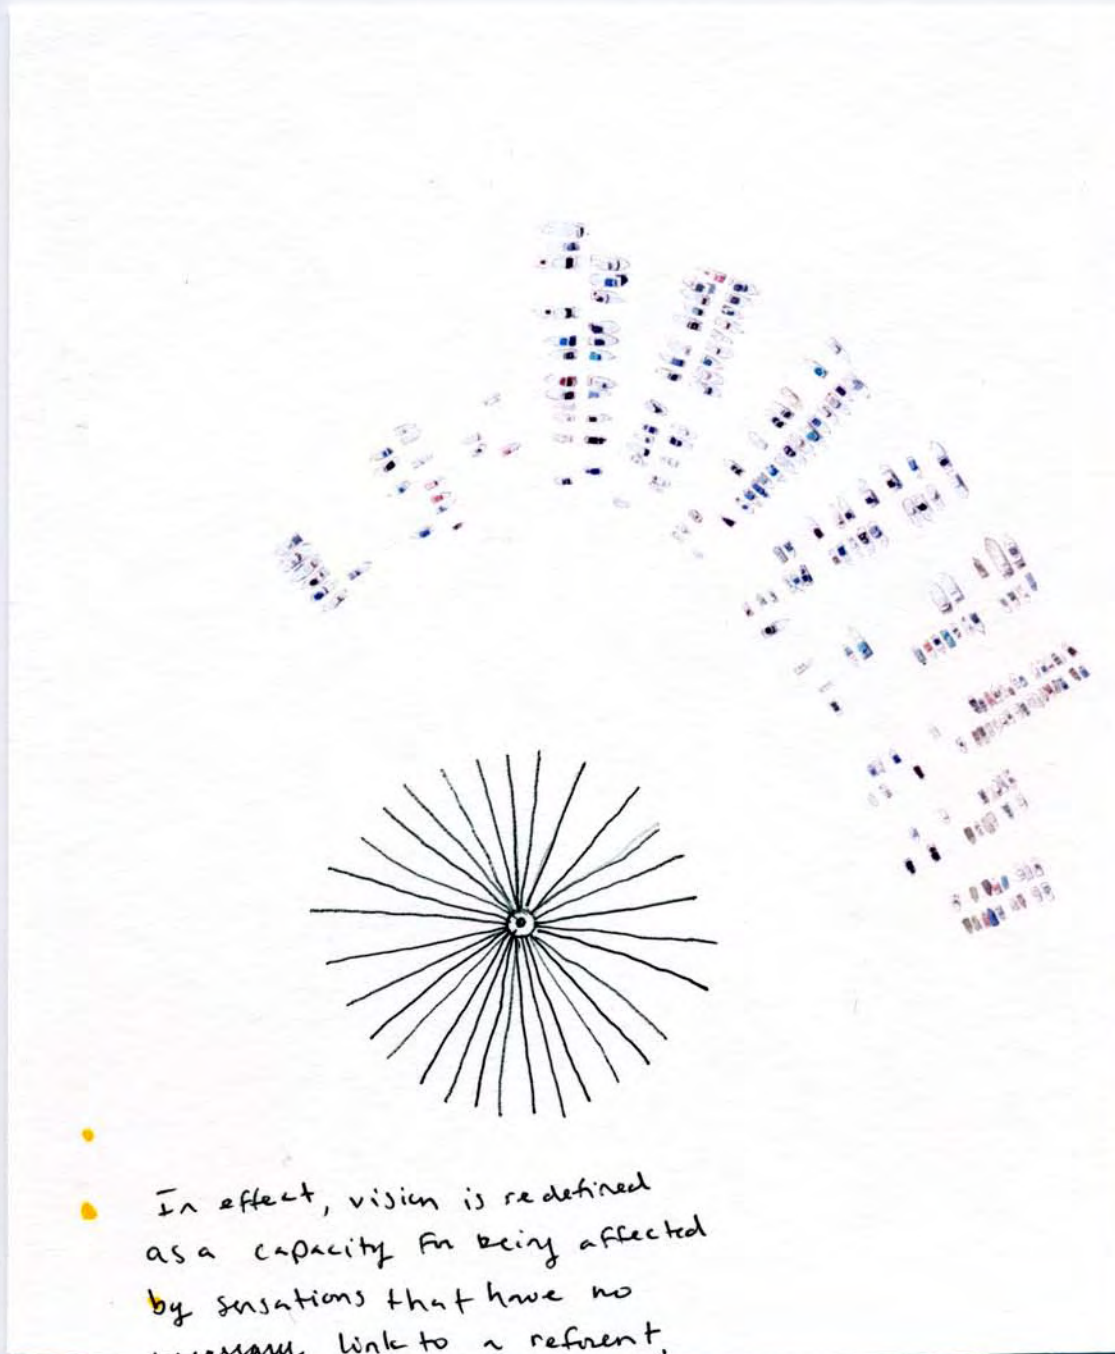 In effect, vision is redefined
as a capacity for being affected
by sensations that have no
link to a referent,